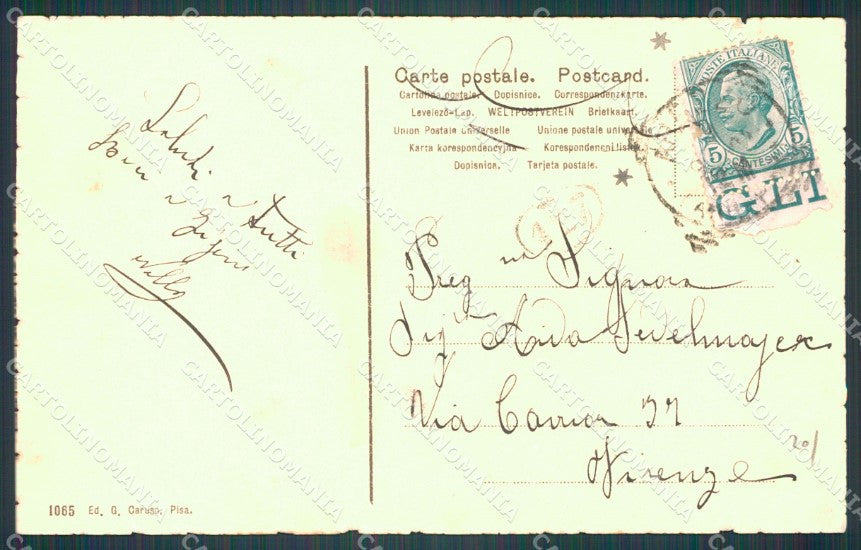 Saluti a tutti
Carte postale. Postcard.
Cartolina postale. Dopisnice. Correspondenzkarte.
Levelező-Lap. WELTPOSTVEREIN Briefkaart.
Union Postale Universelle Unione postale universale
Karta korespondencyjna Korespondenčnílístek.
Dopisnice. Tarjeta postale.
POSTE ITALIANE
5 5
CENTESIMI
GLI
Preg ma Signora
Sig Aida Sedelmajer
Via Cavour 37
Firenze
1065 Ed. G. Caruso, Pisa.
CARTOLINOMANIA